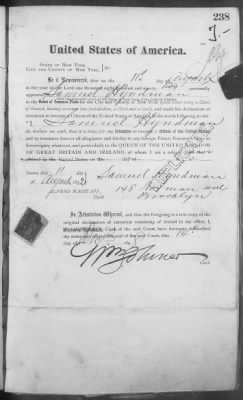 238
United States of America.
STATE OF NEW YORK,
CITY AND COUNTY OF NEW YORK, } ss:
Be it Remembered, that on the 11th day of August
in the year of our Lord one thousand eight hundred and ninety two personally
appeared Samuel Hyndman
in the Court of Common Pleas for the City and County of New York
of Record, having common law jurisdiction, a Clerk and a Seal), and made his declaration of
intention to become a Citizen of the United States of America in the words following to wit:
I, Samuel Hyndman
do declare on oath, that it is bona fide my intention to become a Citizen of the United States
and to renounce forever all allegiance and fidelity to any foreign Prince, Potentate, State or
Sovereignty whatever, and particularly to the QUEEN OF THE UNITED KINGDOM
OF GREAT BRITAIN AND IRELAND, of whom I am a subject
Sworn this 11 day
of August 1892
Samuel Hyndman
148
Brooklyn
ALFRED WAGSTAFF,
Clerk
In Attestation Whereof, and that the foregoing is a true copy of the
original declaration of intention remaining of record in my office, I,
Clerk of the said Court, have hereunto subscribed
my name and affixed the seal of the said Court, this 14
day of
Clerk.